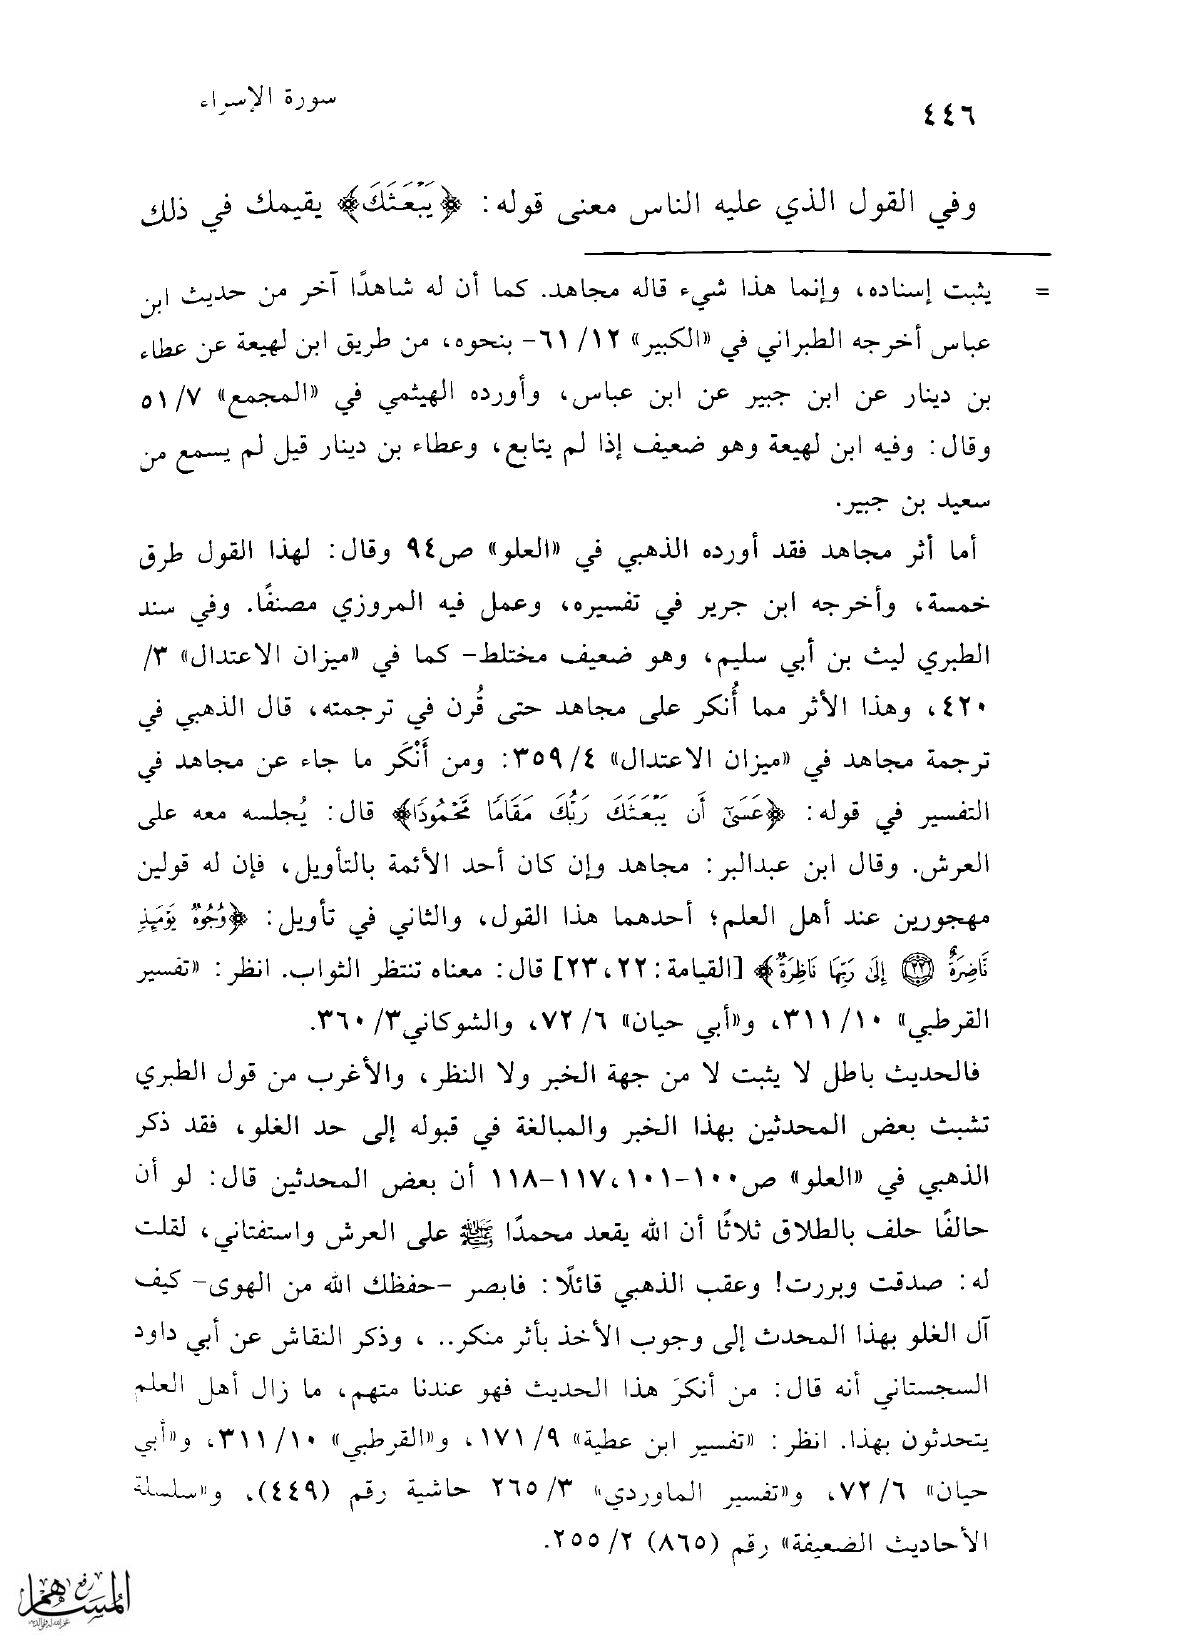 ٤٤٦
سورة الإسراء
وفي القول الذي عليه الناس معنى قوله: ﴿يَبْعَثَكَ﴾ يقيمك في ذلك
= يثبت إسناده، وإنما هذا شيء قاله مجاهد. كما أن له شاهدًا آخر من حديث ابن
عباس أخرجه الطبراني في «الكبير» ١٢/ ٦١- بنحوه، من طريق ابن لهيعة عن عطاء
بن دينار عن ابن جبير عن ابن عباس، وأورده الهيثمي في «المجمع» ٧/ ٥١
وقال: وفيه ابن لهيعة وهو ضعيف إذا لم يتابع، وعطاء بن دينار قيل لم يسمع من
سعيد بن جبير.
أما أثر مجاهد فقد أورده الذهبي في «العلو» ص٩٤ وقال: لهذا القول طرق
خمسة، وأخرجه ابن جرير في تفسيره، وعمل فيه المروزي مصنفًا. وفي سند
الطبري ليث بن أبي سليم، وهو ضعيف مختلط- كما في «ميزان الاعتدال» ٣/
٤٢٠، وهذا الأثر مما أُنكر على مجاهد حتى قُرن في ترجمته، قال الذهبي في
ترجمة مجاهد في «ميزان الاعتدال» ٤/ ٣٥٩: ومن أَنْكَر ما جاء عن مجاهد في
التفسير في قوله: ﴿عَسَىٰٓ أَن يَبْعَثَكَ رَبُّكَ مَقَامًا مَّحْمُودًا﴾ قال: يُجلسه معه على
العرش. وقال ابن عبدالبر: مجاهد وإن كان أحد الأئمة بالتأويل، فإن له قولين
مهجورين عند أهل العلم؛ أحدهما هذا القول، والثاني في تأويل: ﴿وُجُوهٌ يَوْمَئِذٍ
نَّاضِرَةٌ ٢٢ إِلَىٰ رَبِّهَا نَاظِرَةٌ﴾ [القيامة: ٢٢، ٢٣] قال: معناه تنتظر الثواب. انظر: «تفسير
القرطبي» ١٠/ ٣١١، و«أبي حيان» ٦/ ٧٢، والشوكاني٣/ ٣٦٠.
فالحديث باطل لا يثبت لا من جهة الخبر ولا النظر، والأغرب من قول الطبري
تشبث بعض المحدثين بهذا الخبر والمبالغة في قبوله إلى حد الغلو، فقد ذكر
الذهبي في «العلو» ص١٠٠-١٠١، ١١٧-١١٨ أن بعض المحدثين قال: لو أن
حالفًا حلف بالطلاق ثلاثًا أن الله يقعد محمدًا ﷺ على العرش واستفتاني، لقلت
له: صدقت وبررت! وعقب الذهبي قائلًا: فابصر -حفظك الله من الهوى- كيف
آل الغلو بهذا المحدث إلى وجوب الأخذ بأثر منكر.. ، وذكر النقاش عن أبي داود
السجستاني أنه قال: من أنكرَ هذا الحديث فهو عندنا متهم، ما زال أهل العلم
يتحدثون بهذا. انظر: «تفسير ابن عطية» ٩/ ١٧١، و«القرطبي» ١٠/ ٣١١، و«أبي
حيان» ٦/ ٧٢، و«تفسير الماوردي» ٣/ ٢٦٥ حاشية رقم (٤٤٩)، و«سلسلة
الأحاديث الضعيفة» رقم (٨٦٥) ٢/ ٢٥٥.